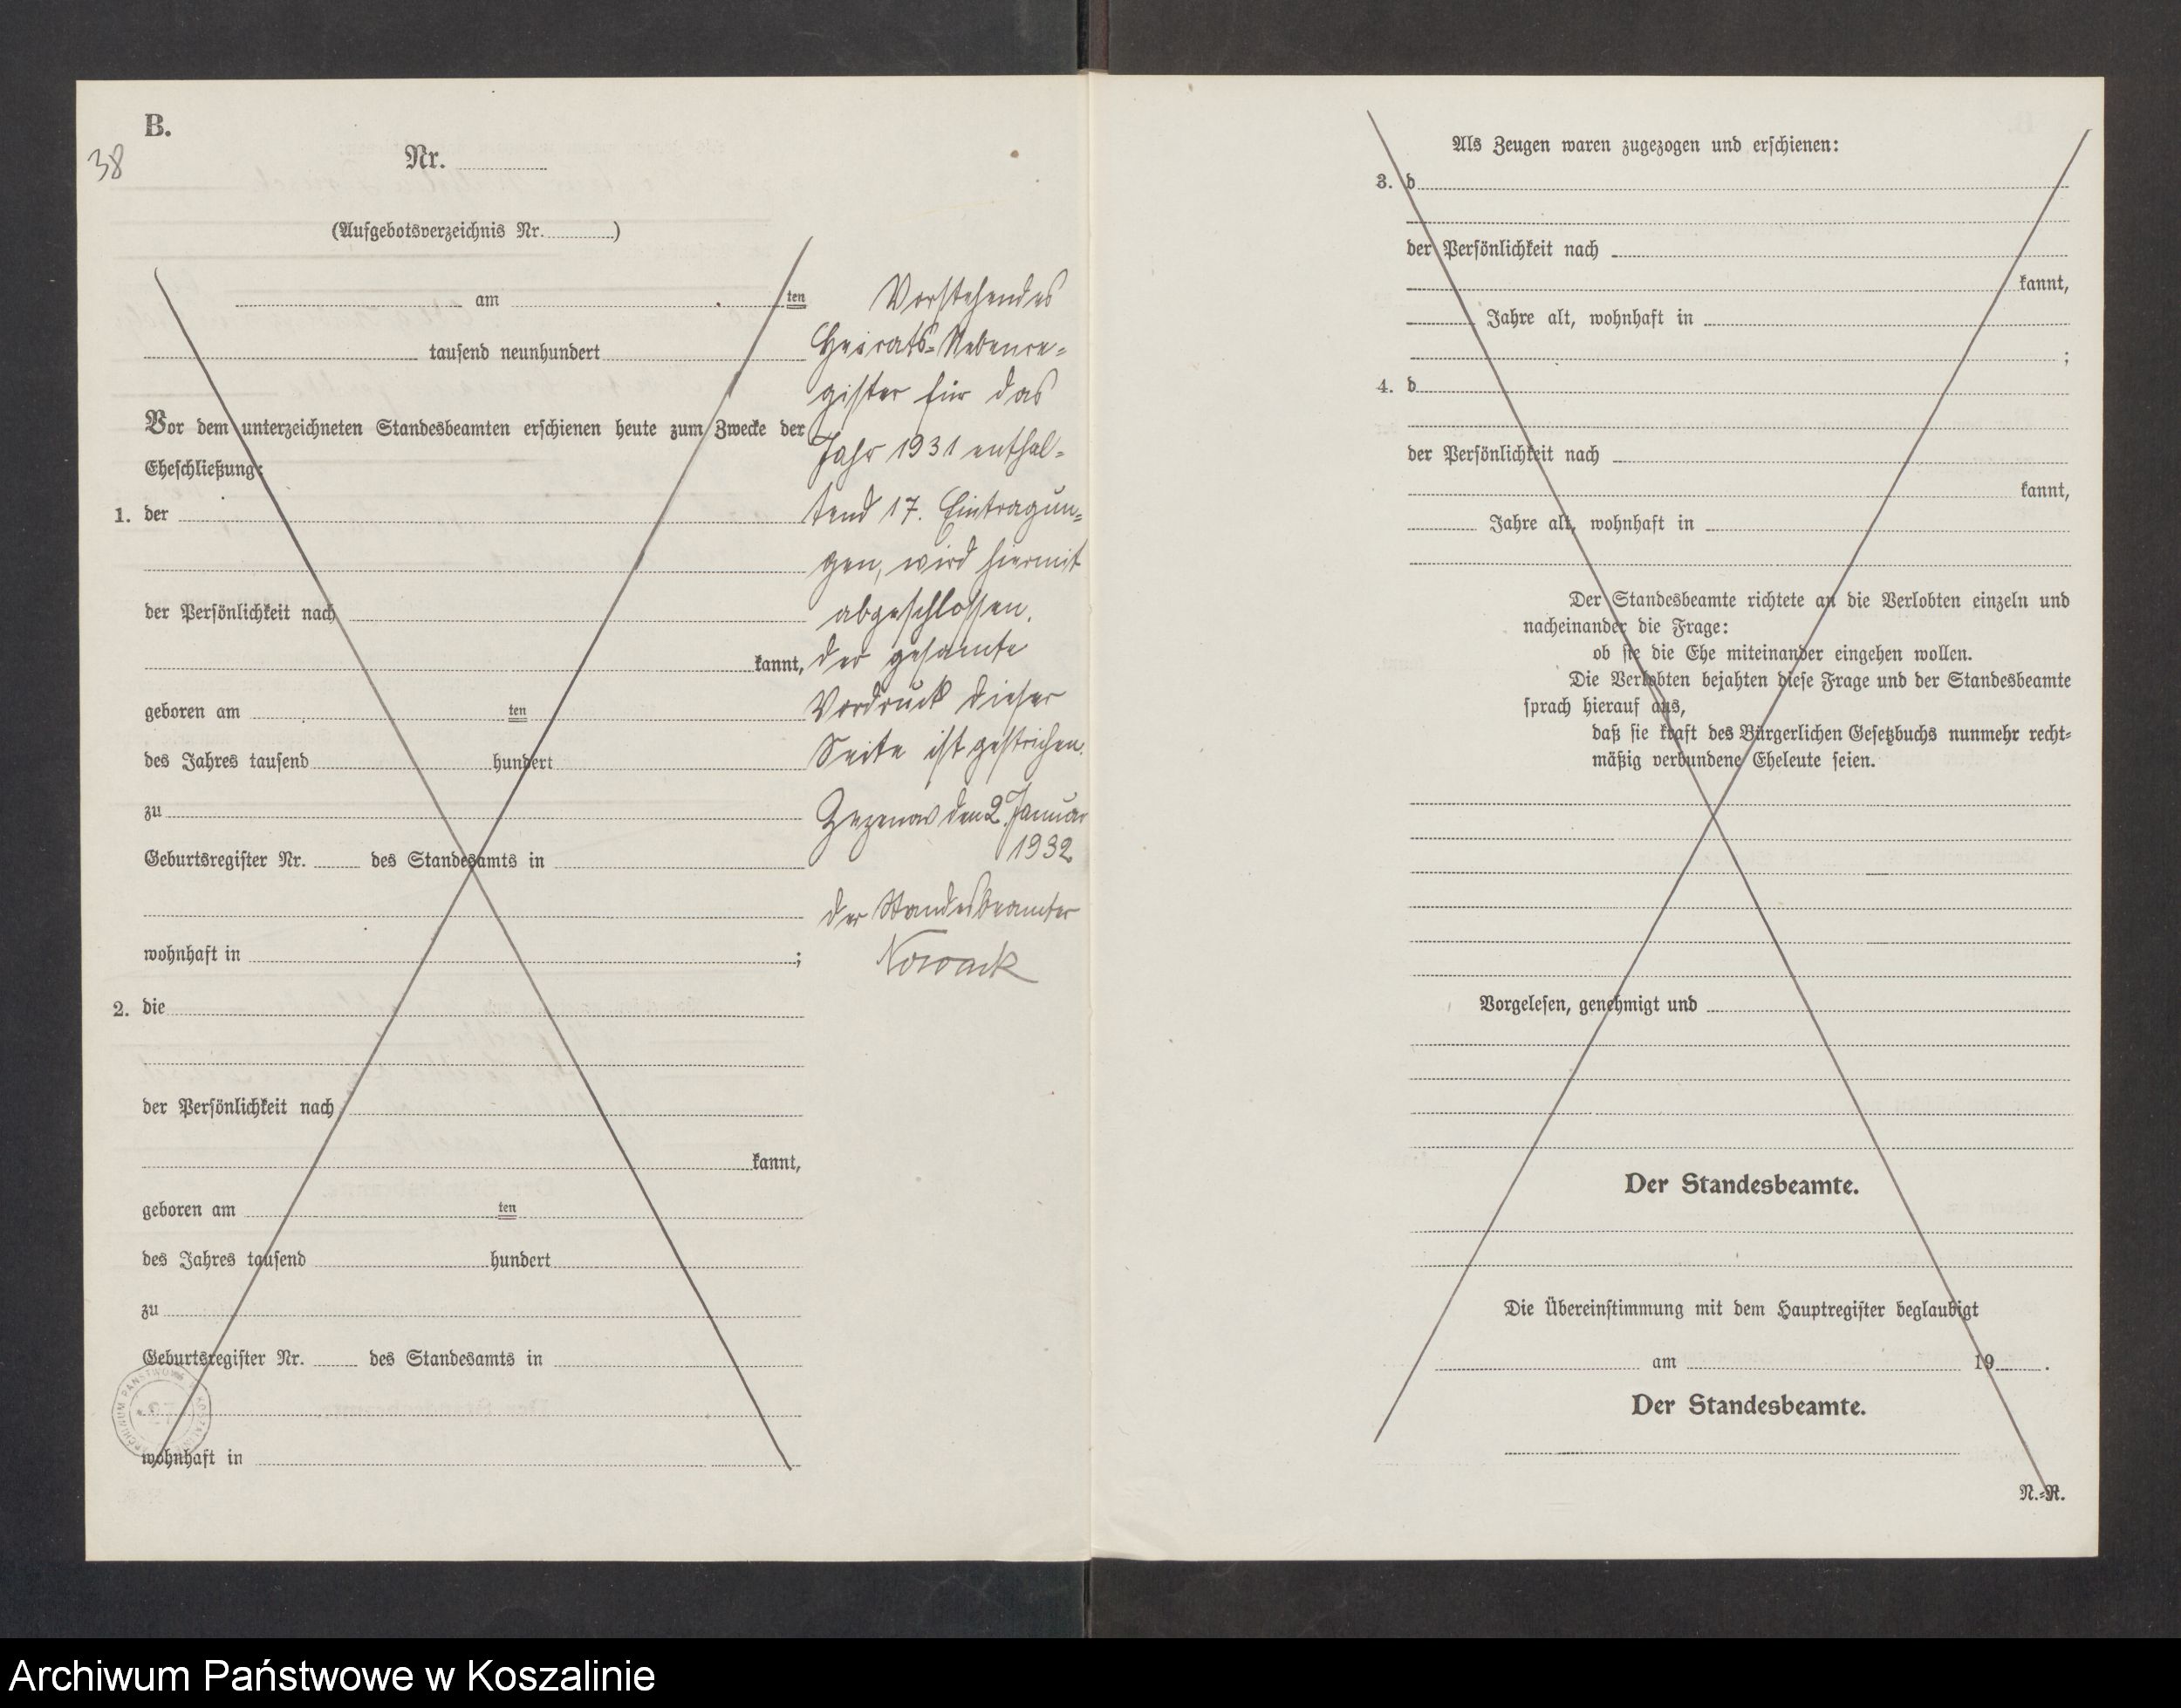 B.
38
Nr.
(Aufgebotsverzeichnis Nr. )
am ten
tausend neunhundert
Vor dem unterzeichneten Standesbeamten erschienen heute zum Zwecke der
Eheschließung:
1. der
der Persönlichkeit nach
kannt,
geboren am ten
des Jahres tausend hundert
zu
Geburtsregister Nr. des Standesamts in
wohnhaft in ;
2. die
der Persönlichkeit nach
kannt,
geboren am ten
des Jahres tausend hundert
zu
Geburtsregister Nr. des Standesamts in
wohnhaft in
Vorstehendes
Heirats-Nebenre-
gister für das
Jahr 1931 enthal-
tend 17. Eintragun-
gen, wird hiermit
abgeschlossen.
Der gesamte
Vordruck dieser
Seite ist gestrichen.
Zezenow den 2. Januar
1932
Der Standesbeamter
Nowack
Als Zeugen waren zugezogen und erschienen:
3. d
der Persönlichkeit nach
kannt,
Jahre alt, wohnhaft in
;
4. d
der Persönlichkeit nach
kannt,
Jahre alt, wohnhaft in
Der Standesbeamte richtete an die Verlobten einzeln und
nacheinander die Frage:
ob sie die Ehe miteinander eingehen wollen.
Die Verlobten bejahten diese Frage und der Standesbeamte
sprach hierauf aus,
daß sie kraft des Bürgerlichen Gesetzbuchs nunmehr recht-
mäßig verbundene Eheleute seien.
Vorgelesen, genehmigt und
Der Standesbeamte.
Die Übereinstimmung mit dem Hauptregister beglaubigt
am 19 .
Der Standesbeamte.
N.-R.
Archiwum Państwowe w Koszalinie